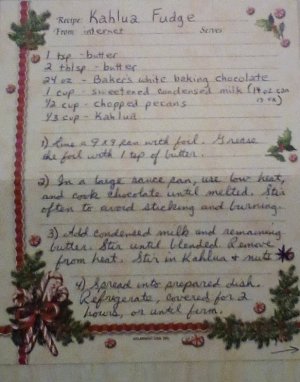 Recipe: Kahlua Fudge
From internet Serves
1 tsp - butter
2 tblsp - butter
24 oz - Baker's white baking chocolate
1 cup - sweetened condensed milk (14 oz. can is ok)
1/2 cup - chopped pecans
1/3 cup - Kahlua
1) Line a 9x9 pan with foil. Grease
the foil with 1 tsp of butter.
2) In a large sauce pan, use low heat,
and cook chocolate until melted. Stir
often to avoid sticking and burning.
3) Add condensed milk and remaining
butter. Stir until blended. Remove
from heat. Stir in Kahlua + nuts
4) Spread into prepared dish.
Refrigerate, covered for 2
hours, or until firm.